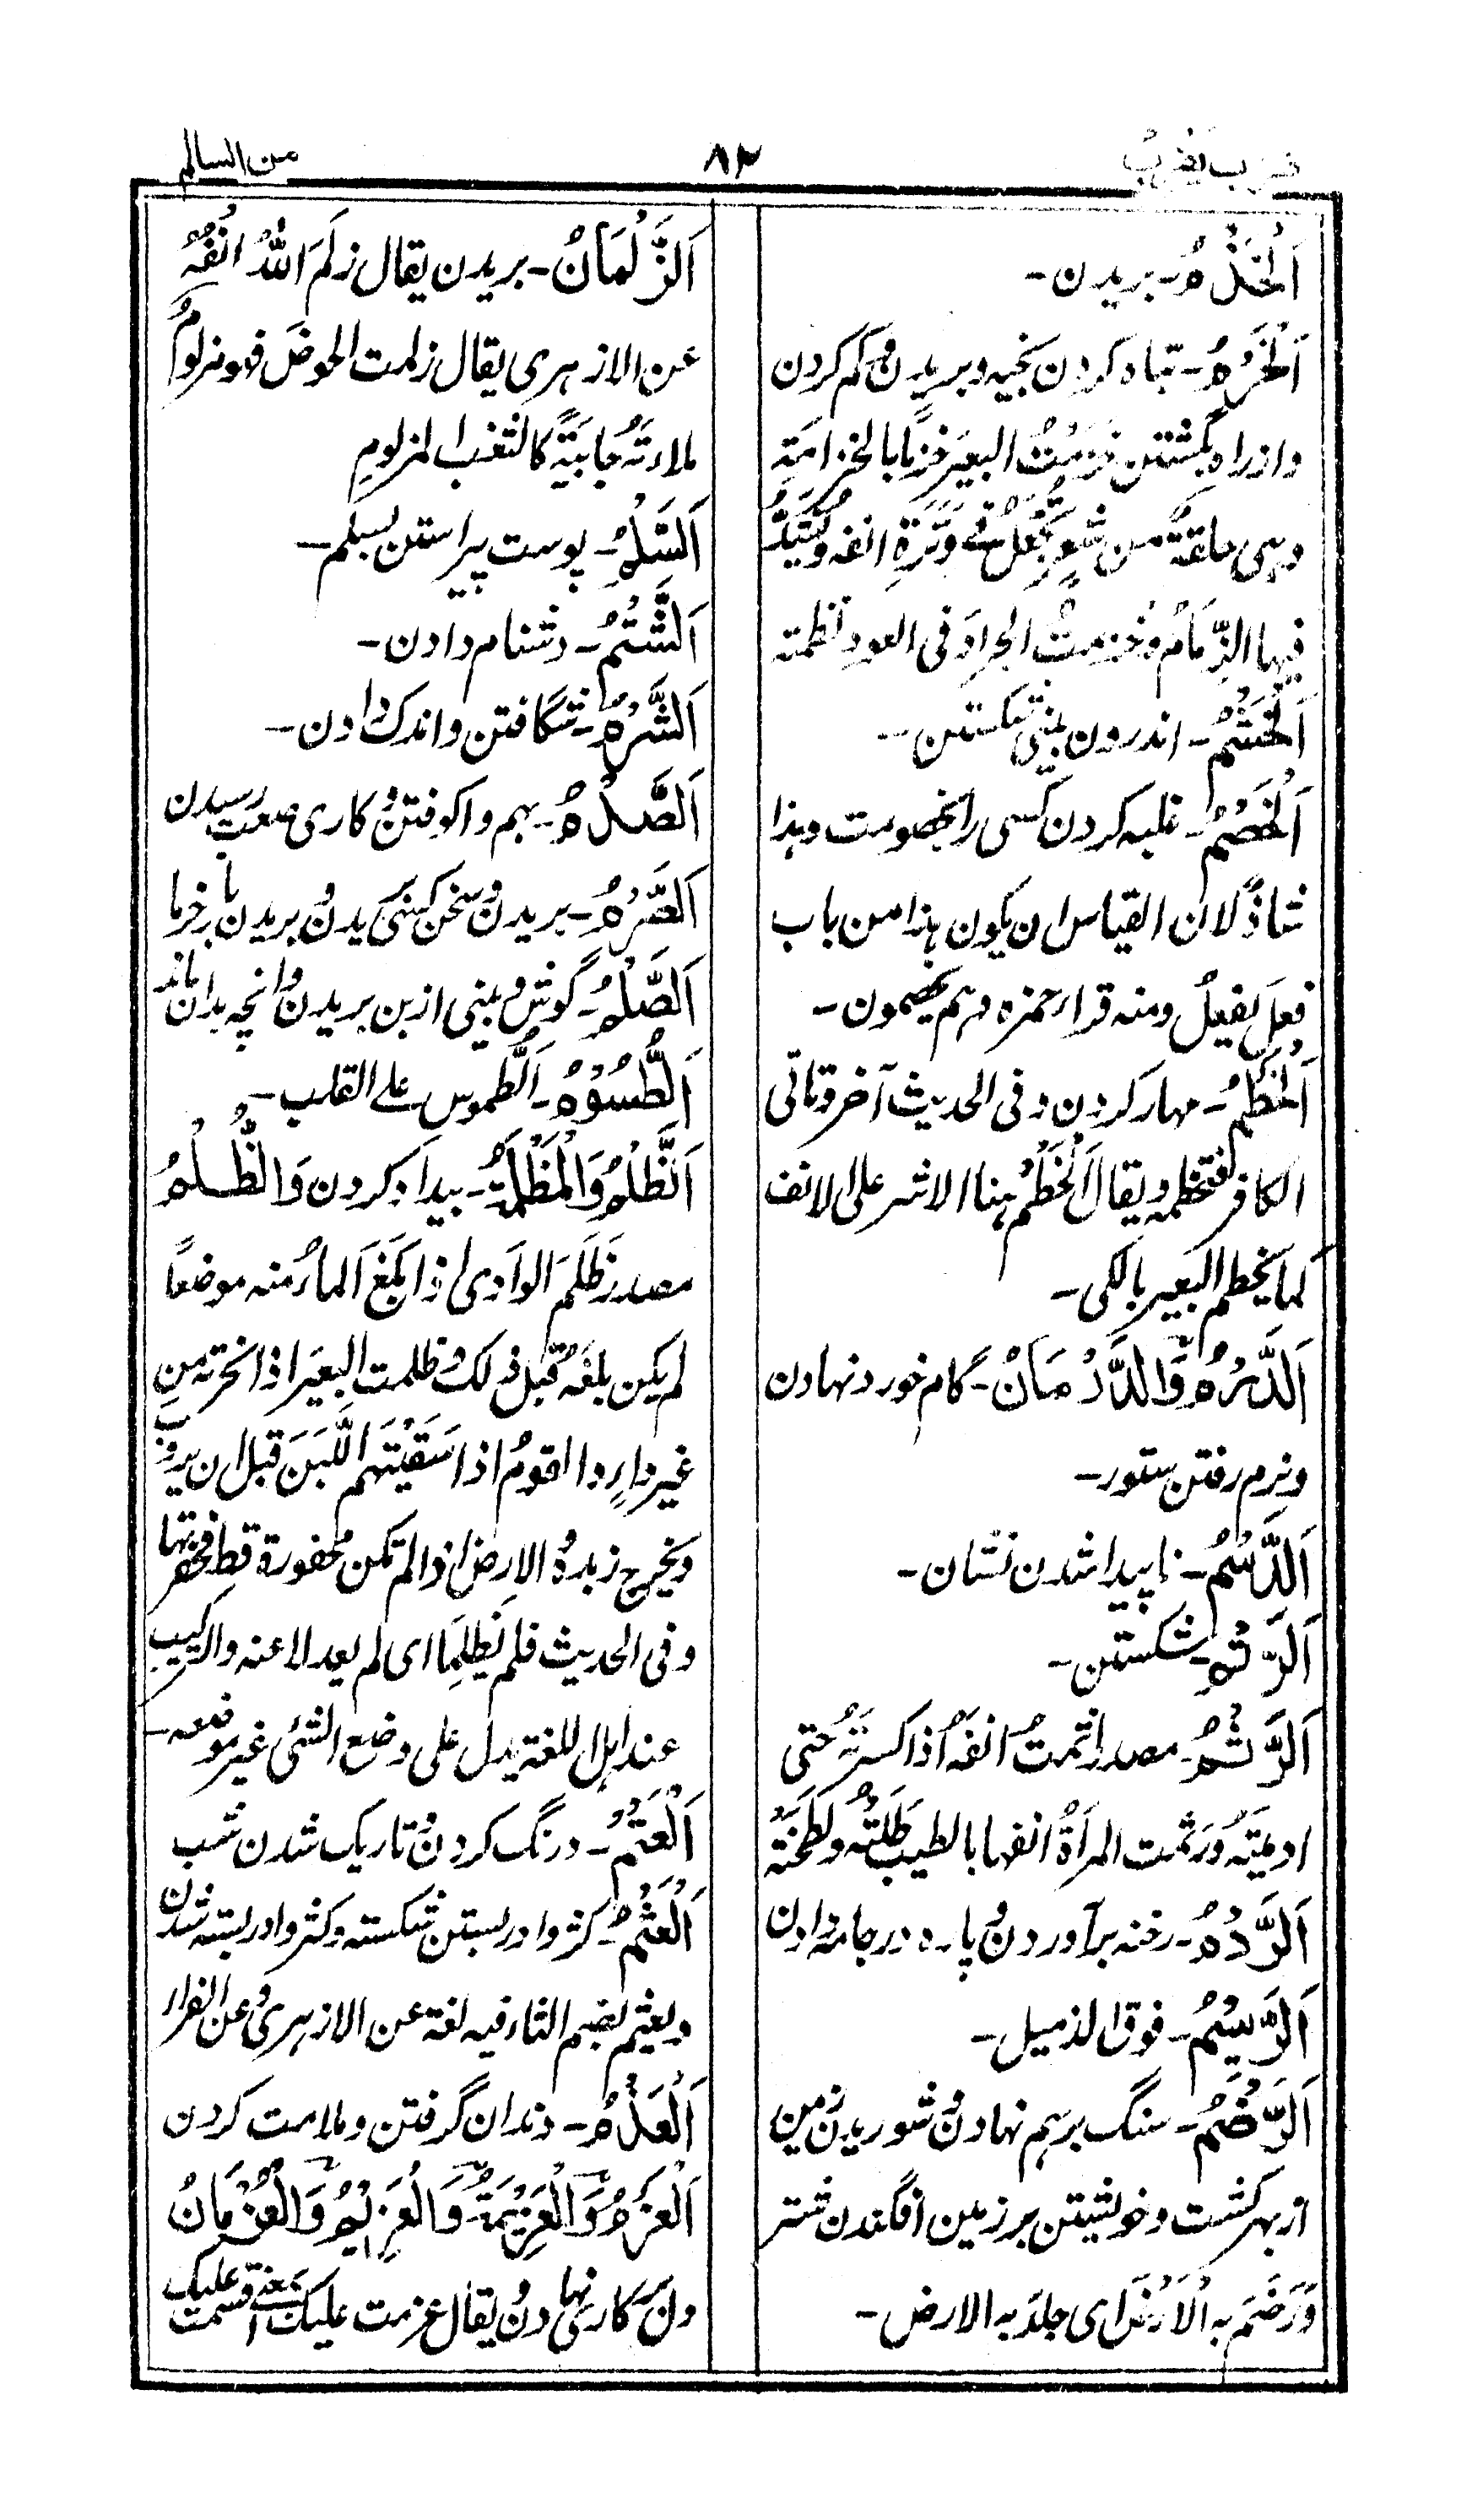 ضرب یضرب
۸۲
من السالم
اَلْخَذْمُ۔ بریدن۔
اَلْخَرْمُ۔ تباه کردن بخیه و بریدن و کم کردن
و از راه بگشتن خزمتُ البعیرَ خزمًا بالخزامة
و هی حلقةٌ من شعرٍ تُجْعَلُ فی وَتَرَةِ انفه ویُشَدُّ
فیها الزِّمامُ و خزمتُ الجرادَ فی العود نظمته
اَلْخَشْمُ۔ اندرون بینی شکستن۔
اَلْخَصْمُ۔ غلبه کردن کسی را بخصومت و هذا
شاذٌ لان القیاس ان یکون هذا من باب
فعل یفعلُ و منه قراء حمزه و هم یخصمون۔
اَلْخَطْمُ۔ مهار کردن و فی الحدیث آخر و تاتی
الکافر فتخطمه و یقال اَلْخَطْمُ هنا الاثر علی الانف
کما یخطم البعیر بالکی۔
اَلدَّرْمُ وَالدَّرَمَانُ۔ گام خورد نهادن
و نرم رفتن ستور۔
اَلدَّسْمُ۔ ناپیدا شدن نشان۔
اَلرَّتْمُ۔ شکستن۔
اَلرَّثْمُ۔ مصدر رثمتُ انفَهُ اذا کسرتَهُ حتی
ادمیتَه و رثمت المرأةُ انفها بالطیب طَلَتْهُ و لطخته
اَلرَّدْمُ۔ رخنه برآوردن و پاره در جامه دادن
اَلرَّسِیْمُ۔ فوق الذمیل۔
اَلرَّضْمُ۔ سنگ بر هم نهادن و شوریدن زمین
از بهر کشت و خویشتن بر زمین افگندن شتر
وَرَضَمَ به الْاَرْضَ ای جلدَ به الارض۔
اَلزَّلْمَانُ۔ بریدن یقال زلَمَ اللهُ انفَهُ
عن الازهری یقال زلمت الحوضَ فهو مزلومٌ
ملاءتَهُ جابیَةً کالثغب المزلومِ
اَلسَّلْمُ۔ پوست پیراستن بسلم۔
اَلشَّتْمُ۔ دشنام دادن۔
اَلشَّرْمُ۔ شگافتن و اندک دادن۔
اَلصَّدْمُ۔ بهم واکوفتن و کاری صعب رسیدن
اَلصَّرْمُ۔ بریدن و سخن کسی بریدن و بریدن بار خرما
اَلصَّلْمُ۔ گوش و بینی از بن بریدن و انچه بدان ماند
اَلطُّسُوْمُ۔ اَلطموس علی القلب۔
اَلظَّلْمُ وَالْمَظْلَمَةُ۔ بیداد کردن وَالظُّلْمُ
مصدر ظَلَمَ الوادی اذا بَلَغَ الماءُ منه موضعًا
لم یکن بلغَهُ قبل ذلک و ظلمت البعیرَ اذا نحرته من
غیر داءٍ و القومُ اذا سَقَیْتَهم اللَّبَنَ قبل ان یروب
و یخرج زبدهُ الارض اذا لم تکن محفورة قط فحفرتها
و فی الحدیث فلم یَظلِمَا ای لم یعدلا عنه و الترکیب
عند اهل اللغة یدل علی وضع الشئ غیر موضعه۔
اَلْعَتْمُ۔ درنگ کردن و تاریک شدن شب
اَلْعَثْمُ۔ کژ وا در بستن شکسته و کژ وا در بسته شدن
و یعثم بضم الثاء فیه لغة عن الازهریؒ و عن الفراء
اَلْعَذْمُ۔ دندان گرفتن و ملامت کردن
اَلْعَزْمُ وَالْعَزِیْمَةُ وَالْعَزِیْمُ وَالْعُزْمَانُ
دل بر کاری نهادن و یقال عزمت علیک بمعنی اقسمت علیک